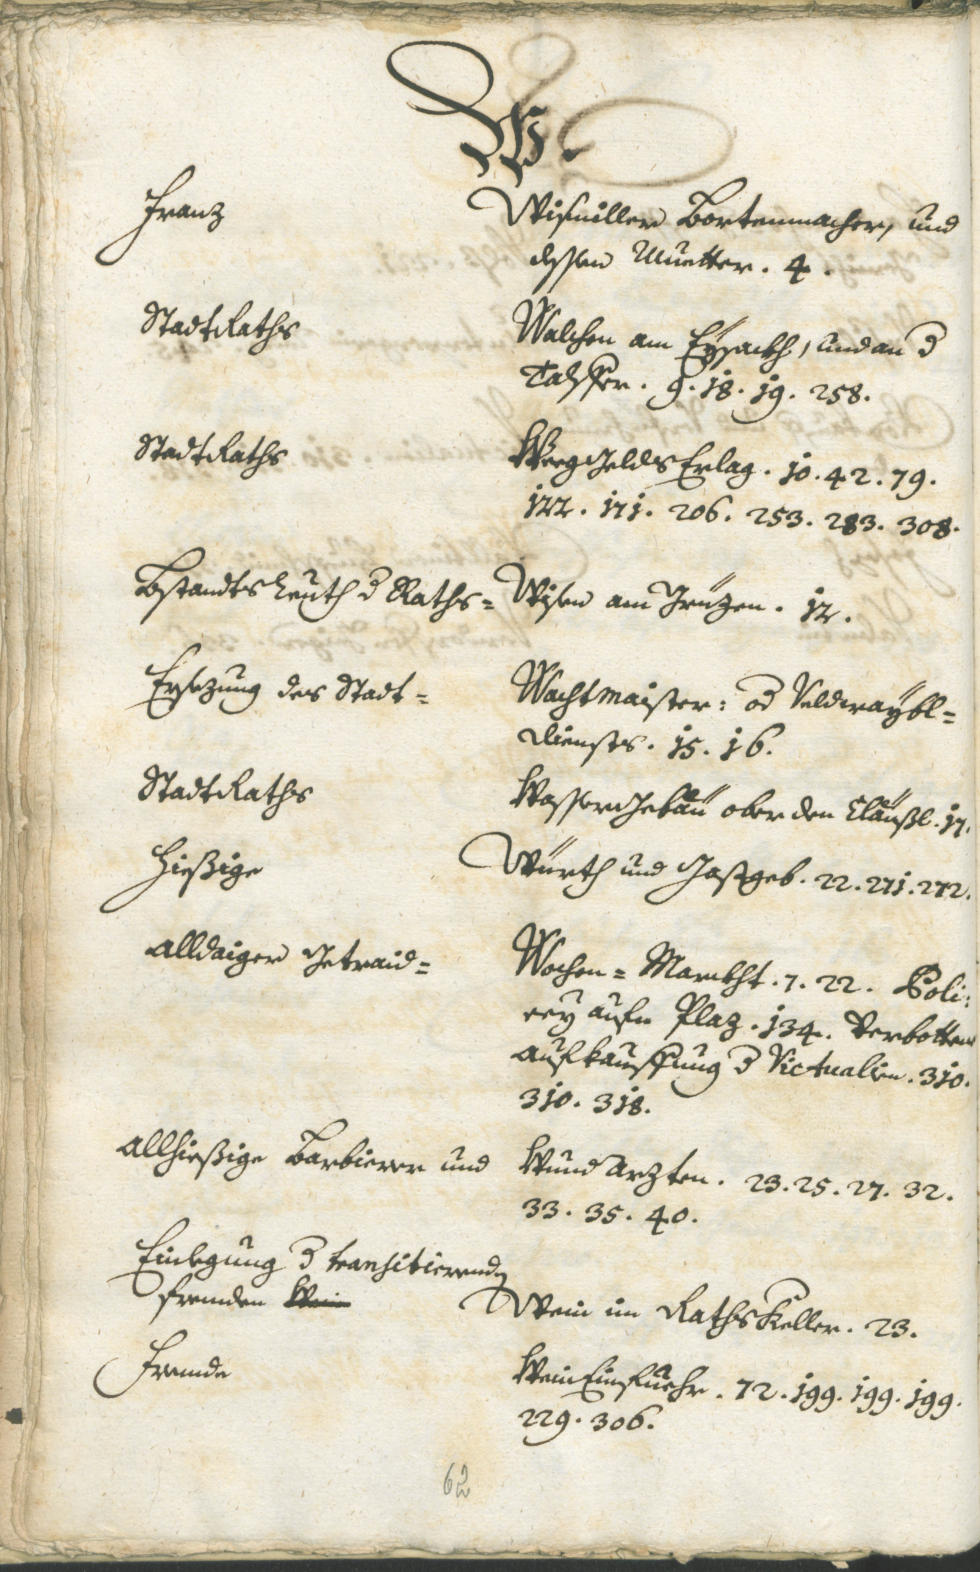 W.
Franz Wisniller Bortenmacher, und
dessen Muetter. 4.
StadtRaths Walchen am Eysackh, und an d
Talffer. 9. 18. 19. 258.
StadtRaths WeegGelds Erlag. 10. 42. 79.
122. 171. 206. 253. 283. 308.
Bstandts Leuth d Raths= Wisen am Grüzen. 12.
Ersezung des Stadt= Wachtmaister: od Veldwaybl=
Diensts. 15. 16.
StadtRaths WasserGebäu ober den Cläusl. 17.
Hiesige Würth und Gastgeb. 22. 271. 272.
alldaiger Getraid= Wochen= Marckht. 7. 22. Poli:
cey aufn Plaz. 134. Verbottene
aufkauffung d Victualien. 310.
310. 318.
allhiesige Barbierer und Wund Arzten. 23. 25. 27. 32.
33. 35. 40.
Einlegung d transitierend
frembden Wein Wein im RathsKeller. 23.
Frembde WeinEinfuehr. 72. 199. 199. 199.
229. 306.
62